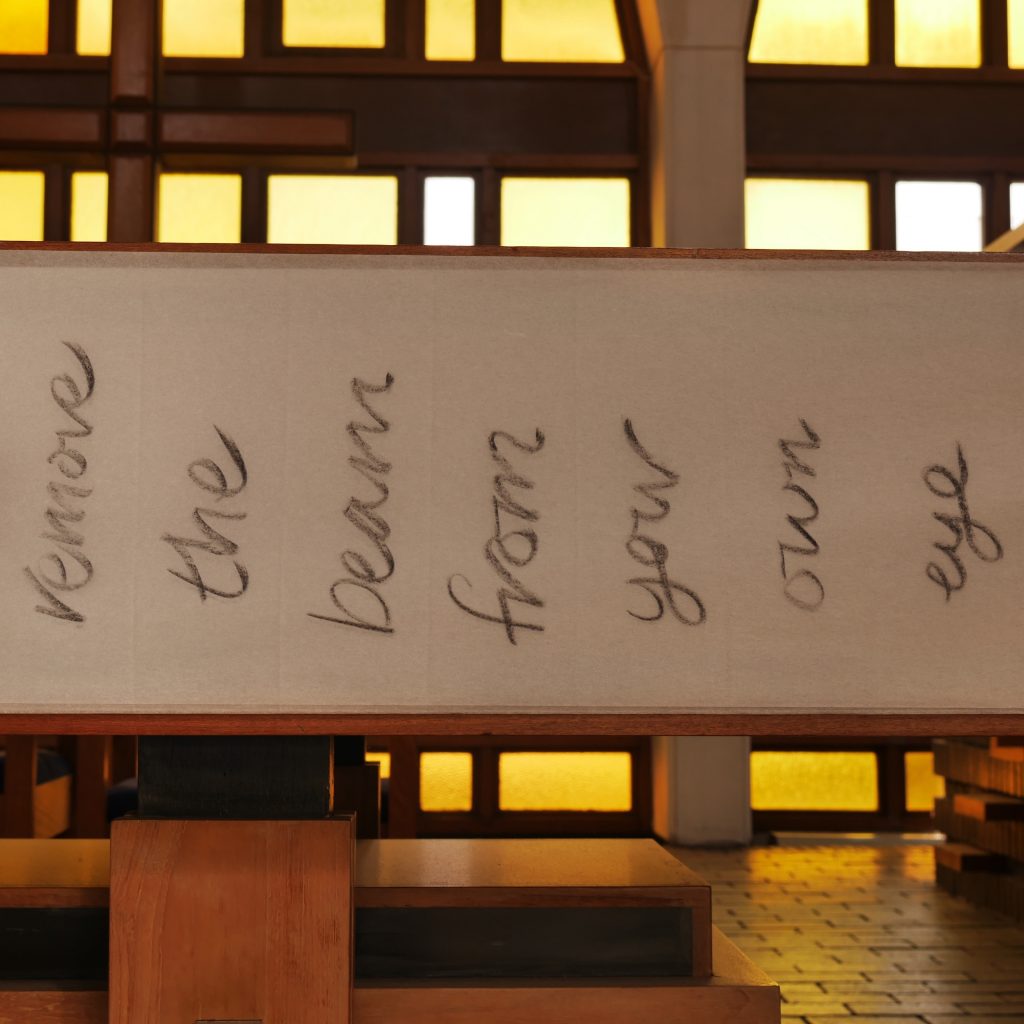 remove
the
beam
from
your
own
eye